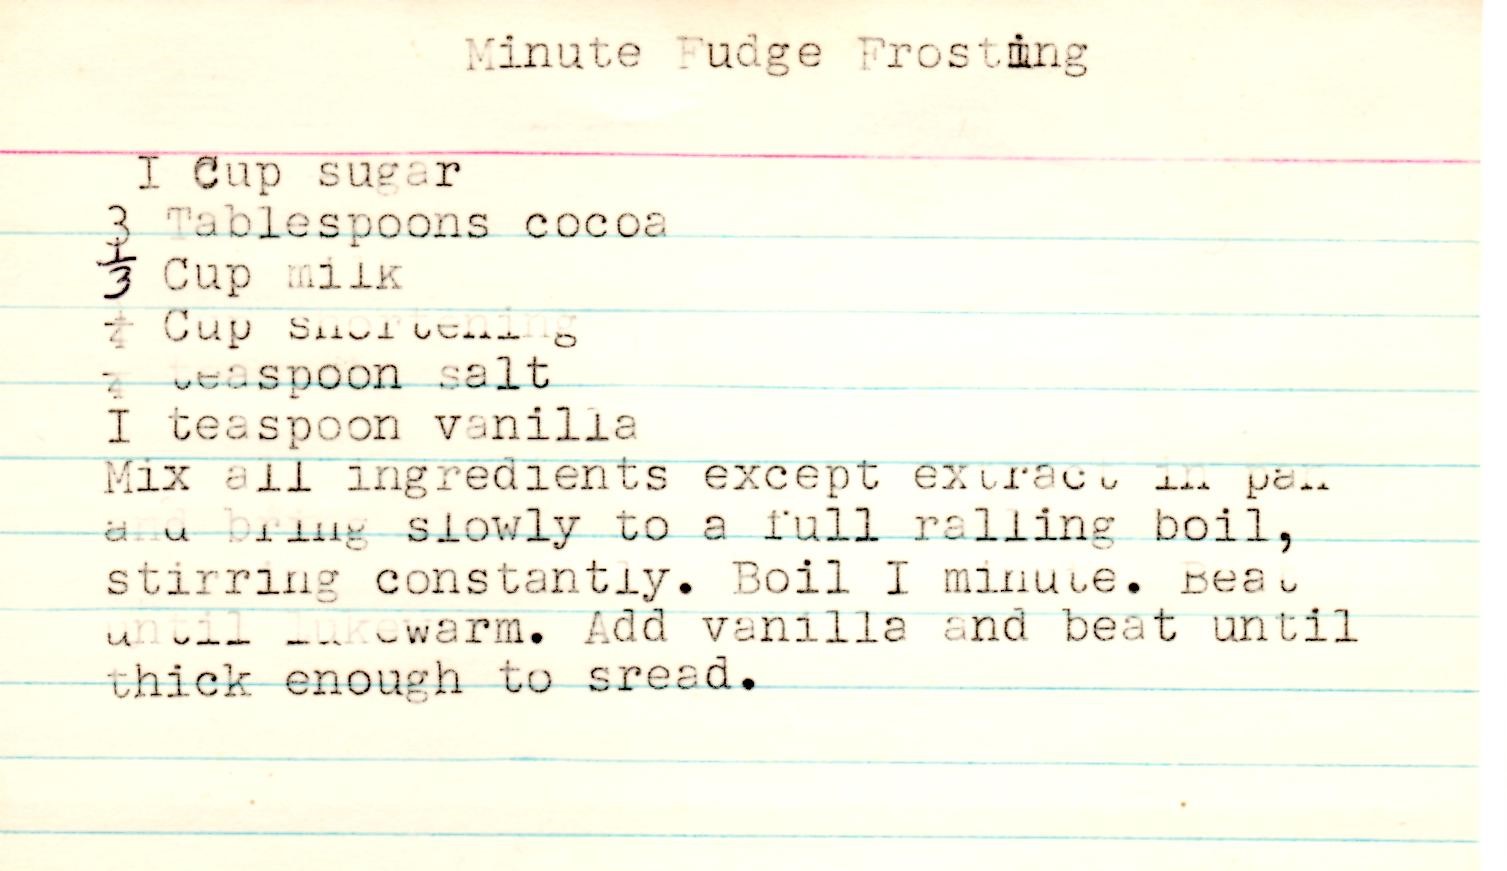 Minute Fudge Frosting
I Cup sugar
3 Tablespoons cocoa
1/3 Cup milk
¼ Cup shortening
¼ teaspoon salt
I teaspoon vanilla
Mix all ingredients except extract in pan
and bring slowly to a full ralling boil,
stirring constantly. Boil I minute. Beat
until lukewarm. Add vanilla and beat until
thick enough to sread.